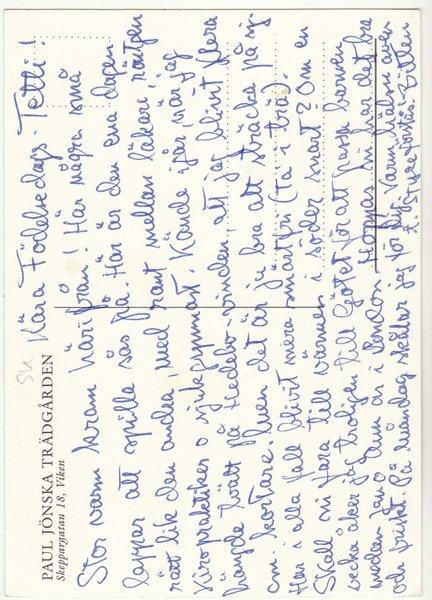 SK
PAUL JÖNSKA TRÄDGÅRDEN
Skeppargatan 18, Viken
Kära Födelsedags-Tetti!
Stor varm kram härifrån! Här några små
lappar att spilla sås på. Här är den ena dagen
rätt lik den andra, med rant mellan läkare, röntgen
kiropraktiker o sjukgymnast. Kände igår, när jag
hängde tvätt på Hedebo-vinden, att jag blivit flera
cm. kortare. Men det är ju bra att sträcka på sej
Har i alla fall blivit mera smärtfri (ta i trä).
Skall ni fara till värmen i söder snart? Om en
vecka åker jag troligen till Götet för att passa barnen
medan Jan o Gunn är i London. Hoppas ni har det bra
och friskt. På måndag skålar jag för dej! Varm hälsn även
t. Sture förstås! Titten